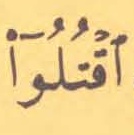 ٱقۡتُلُوٓاْ